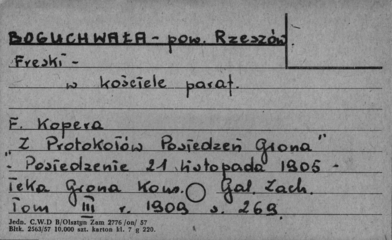 BOGUCHWAŁA - pow. Rzeszów.
Freski -
w kościele paraf.
F. Kopera
"Z Protokołów Posiedzeń Grona"
- Posiedzenie 21 listopada 1905 -
Teka Grona Kons. Gal. Zach.
Tom III r. 1909 s. 269.
Jedn. C.W.D B/Olsztyn Zam 2776 /on/ 57
Bltk. 2563/57 10.000 szt. karton kl. 7 g 220.